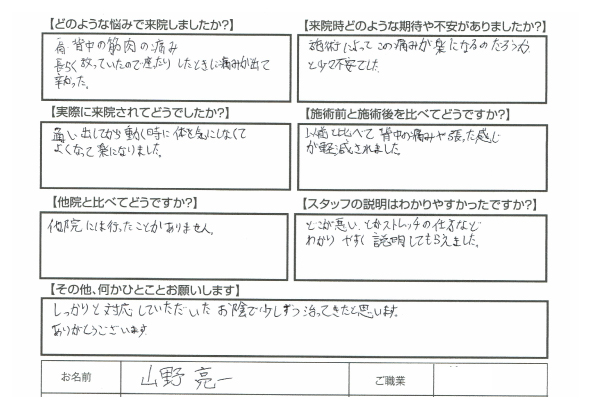 【どのような悩みで来院しましたか?】
肩・背中の筋肉の痛み
長らく放っていたので座ったりしたときに痛みが出て
辛かった。
【来院時どのような期待や不安がありましたか?】
施術によってこの痛みが楽になるのだろうか
と少々不安でした
【実際に来院されてどうでしたか?】
通い出してから動く時に体を気にしなくて
よくなって楽になりました。
【施術前と施術後を比べてどうですか?】
以前と比べて背中の痛みや張った感じ
が軽減されました。
【他院と比べてどうですか?】
他院には行ったことがありません。
【スタッフの説明はわかりやすかったですか?】
どこが悪い、とかストレッチの仕方など
わかりやすく説明してもらえました。
【その他、何かひとことお願いします】
しっかりと対応していただいたお陰で少しずつ治ってきたと思います。
ありがとうございます
お名前
山野 亮一
ご職業